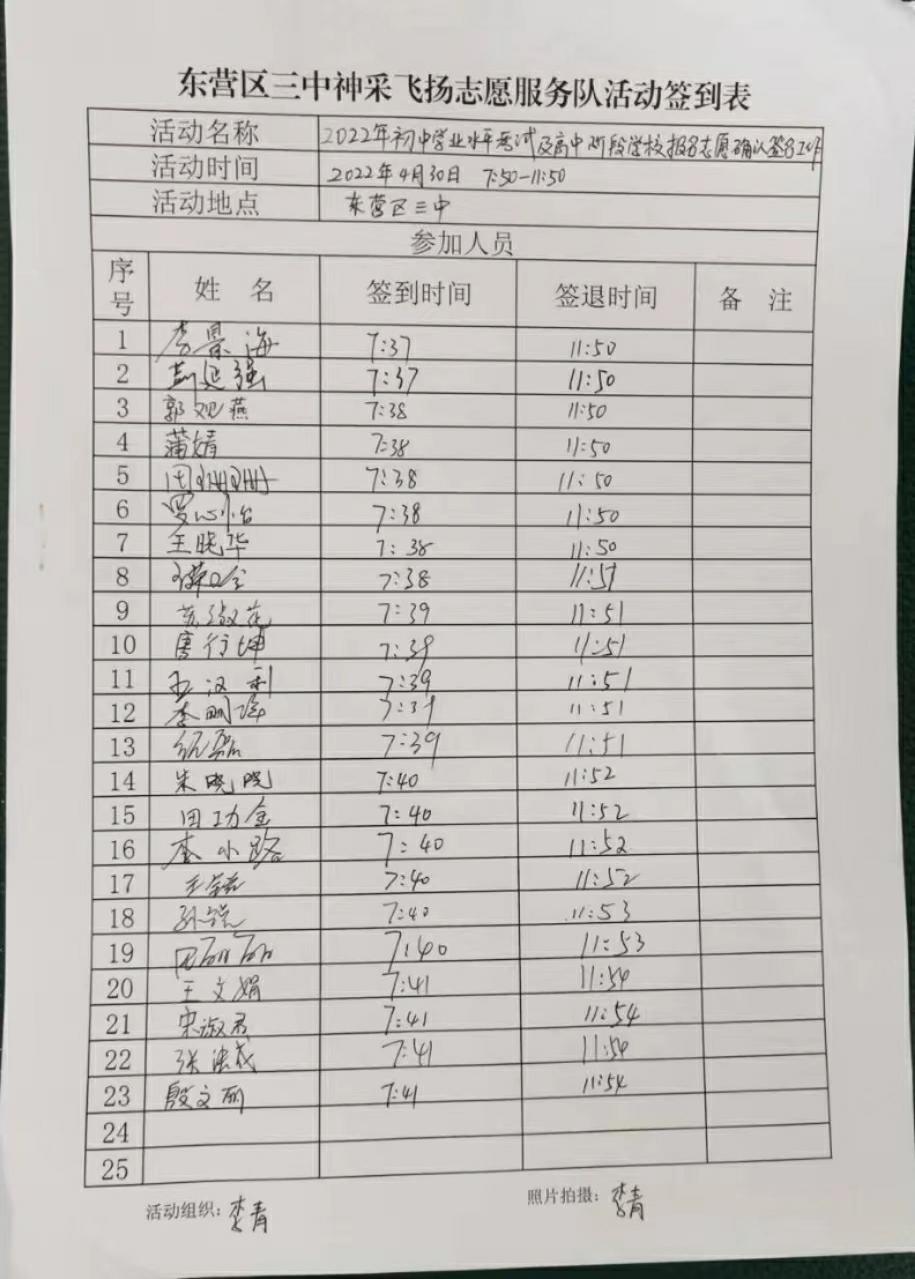 东营区三中神采飞扬志愿服务队活动签到表
活动名称 2022年初中学业水平考试及高中阶段学校报名志愿确认签名工作
活动时间 2022年4月30日 7:50-11:50
活动地点 东营区三中
参加人员
序号 姓 名 签到时间 签退时间 备 注
1 李景海 7:37 11:50
2 延强 7:37 11:50
3 郭观燕 7:38 11:50
4 蒲婧 7:38 11:50
5 田珊珊 7:38 11:50
6 罗心怡 7:38 11:50
7 王晓华 7:38 11:50
8 7:38 11:51
9 苏淑花 7:39 11:51
10 唐行坤 7:39 11:51
11 王汉利 7:39 11:51
12 李 7:39 11:51
13 纪磊 7:39 11:51
14 朱晓晓 7:40 11:52
15 田功金 7:40 11:52
16 李小路 7:40 11:52
17 王 7:40 11:52
18 孙 7:40 11:53
19 田丽丽 7:40 11:53
20 王文娟 7:41 11:54
21 宋淑君 7:41 11:54
22 张法成 7:41 11:54
23 殷文丽 7:41 11:54
24
25
活动组织：李青 照片拍摄：李青